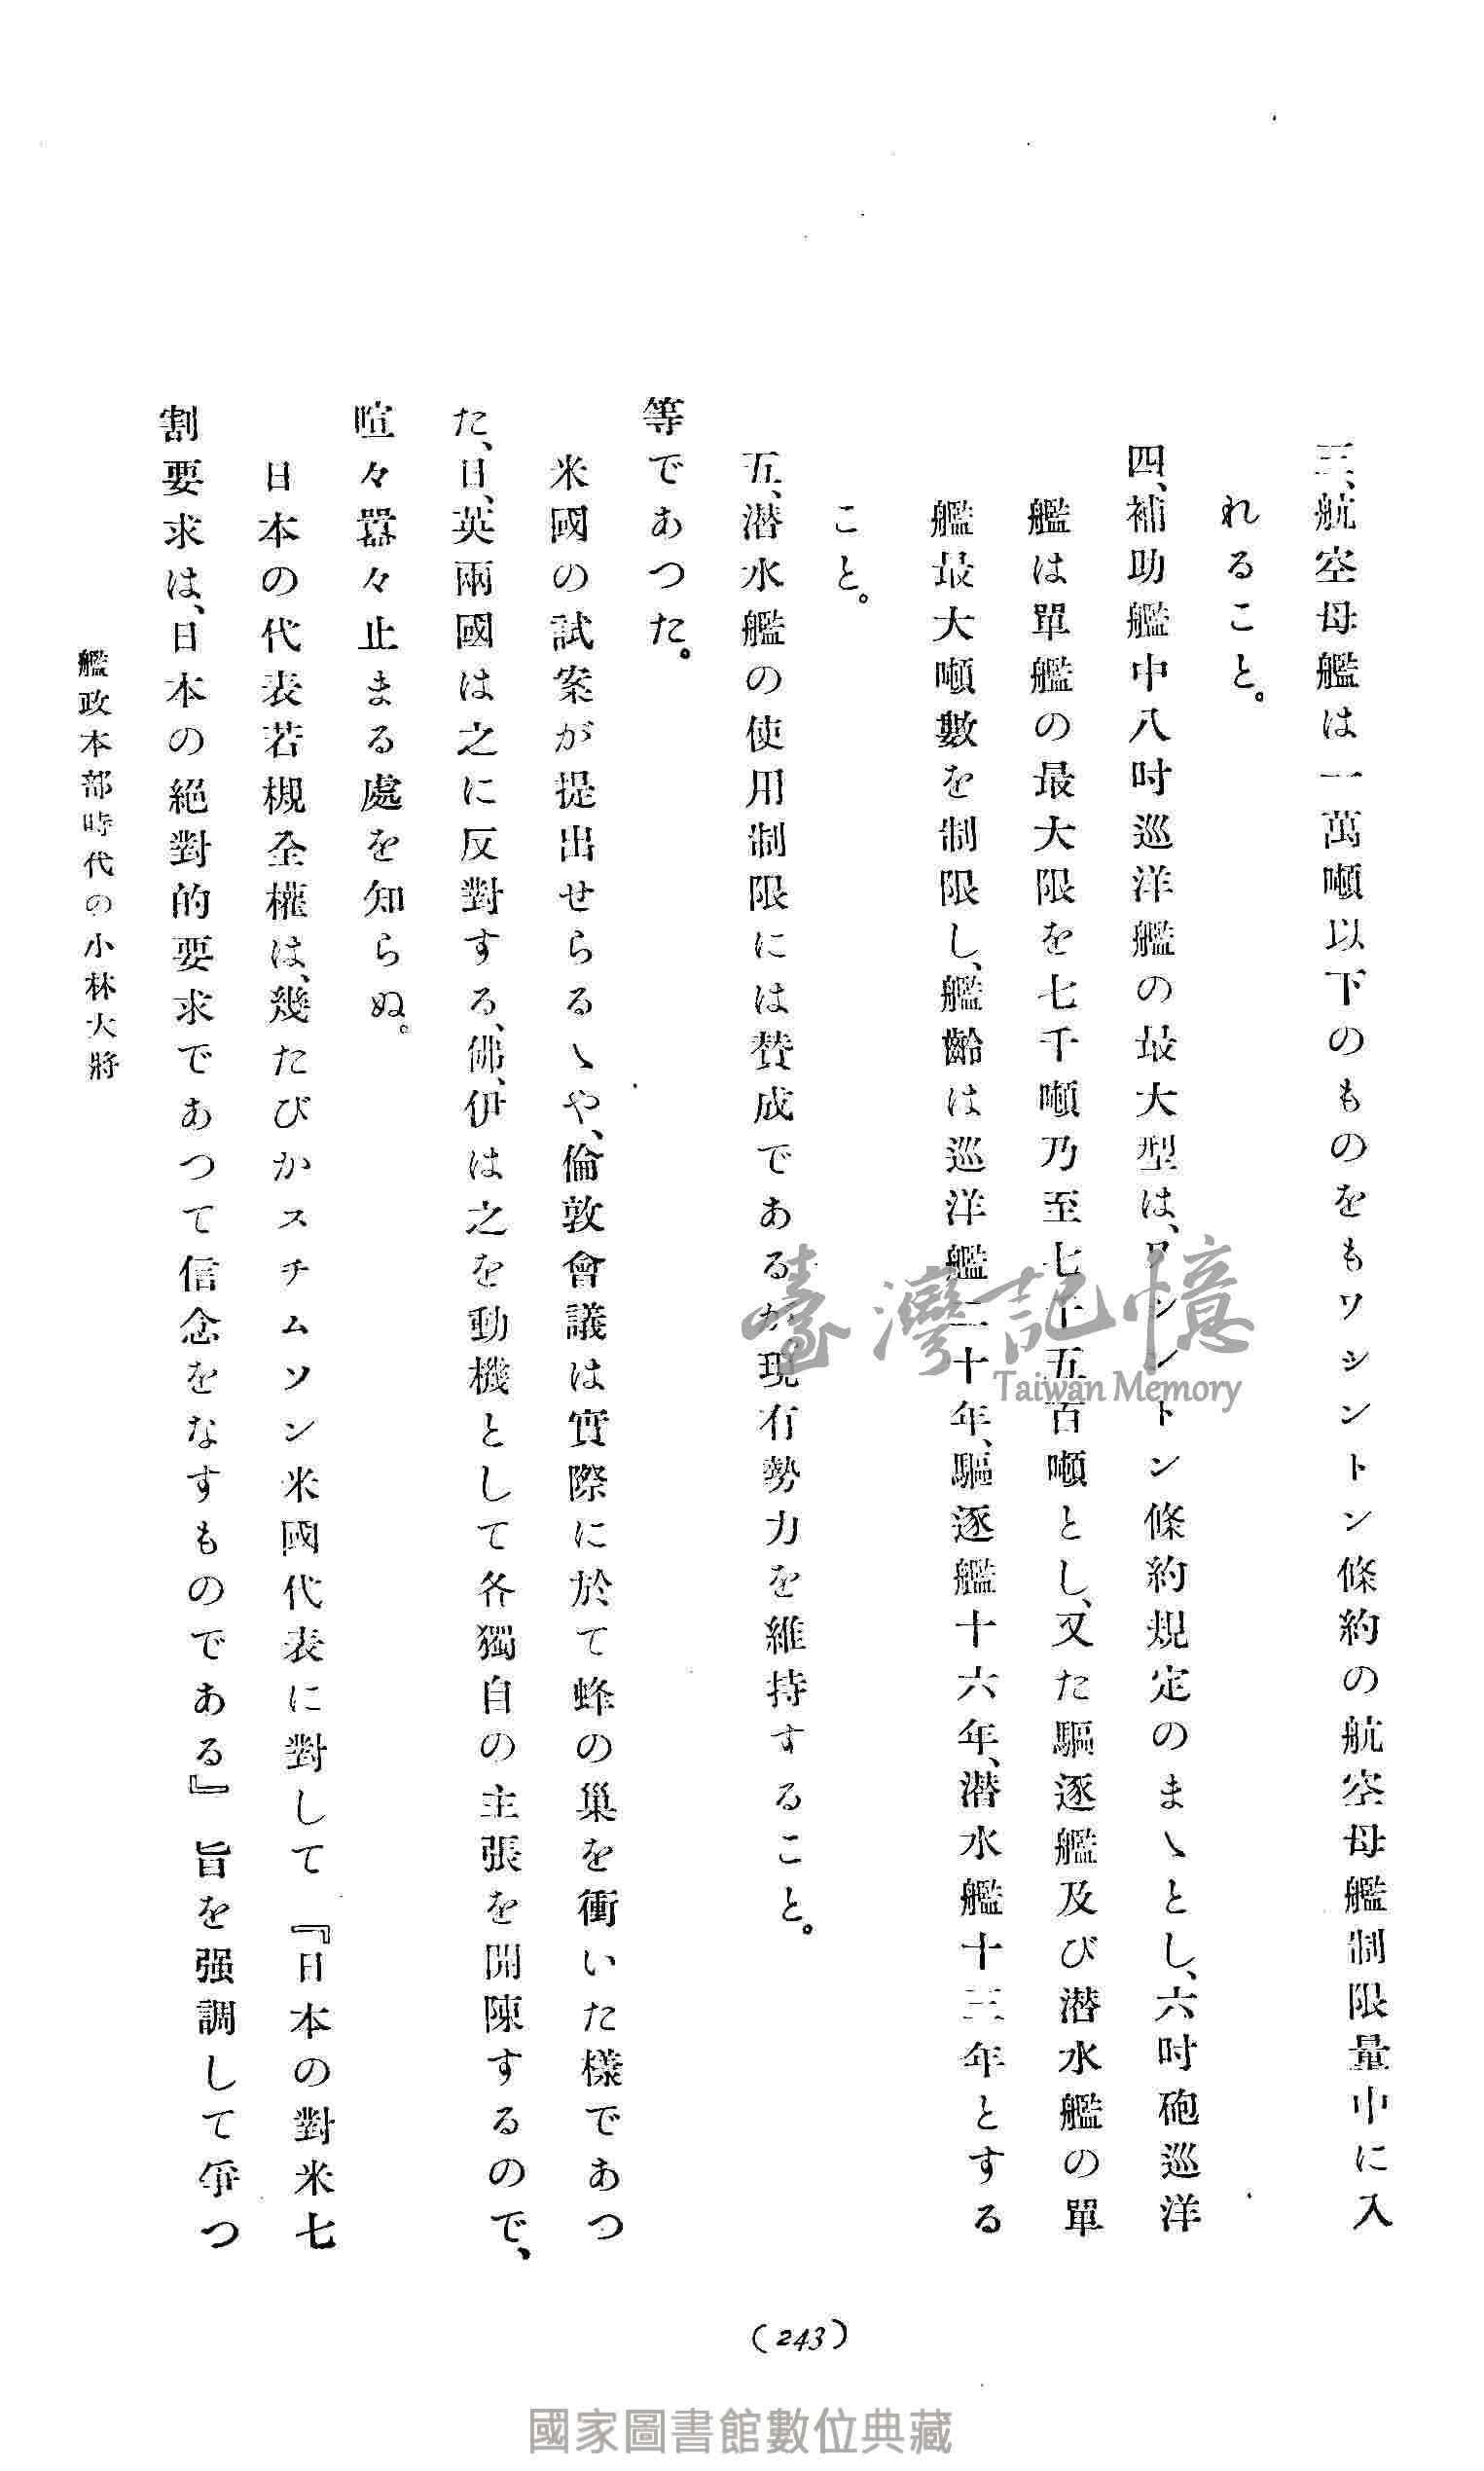 三、航空母艦は一萬噸以下のものをもワシントン條約の航空母艦制限量中に入
れること。
四、補助艦中八吋巡洋艦の最大型は、ワシントン條約規定のまゝとし、六吋砲巡洋
艦は單艦の最大限を七千噸乃至七千五百噸とし、又た驅逐艦及び潜水艦の單
艦最大噸數を制限し、艦齡は巡洋艦二十年、驅逐艦十六年、潜水艦十三年とする
こと。
五、潜水艦の使用制限には賛成であるが現有勢力を維持すること。
等であつた。
米國の試案が提出せらるゝや、倫敦會議は實際に於て蜂の巢を衝いた樣であつ
た、日、英兩國は之に反對する、佛、伊は之を動機として各獨自の主張を開陳するので、
喧々囂々止まる處を知らぬ。
日本の代表若槻全權は、幾たびかスチムソン米國代表に對して『日本の對米七
割要求は、日本の絕對的要求であつて信念をなすものである』旨を强調して爭つ
艦政本部時代の小林大將
(243)
臺灣記憶
Taiwan Memory
國家圖書館數位典藏